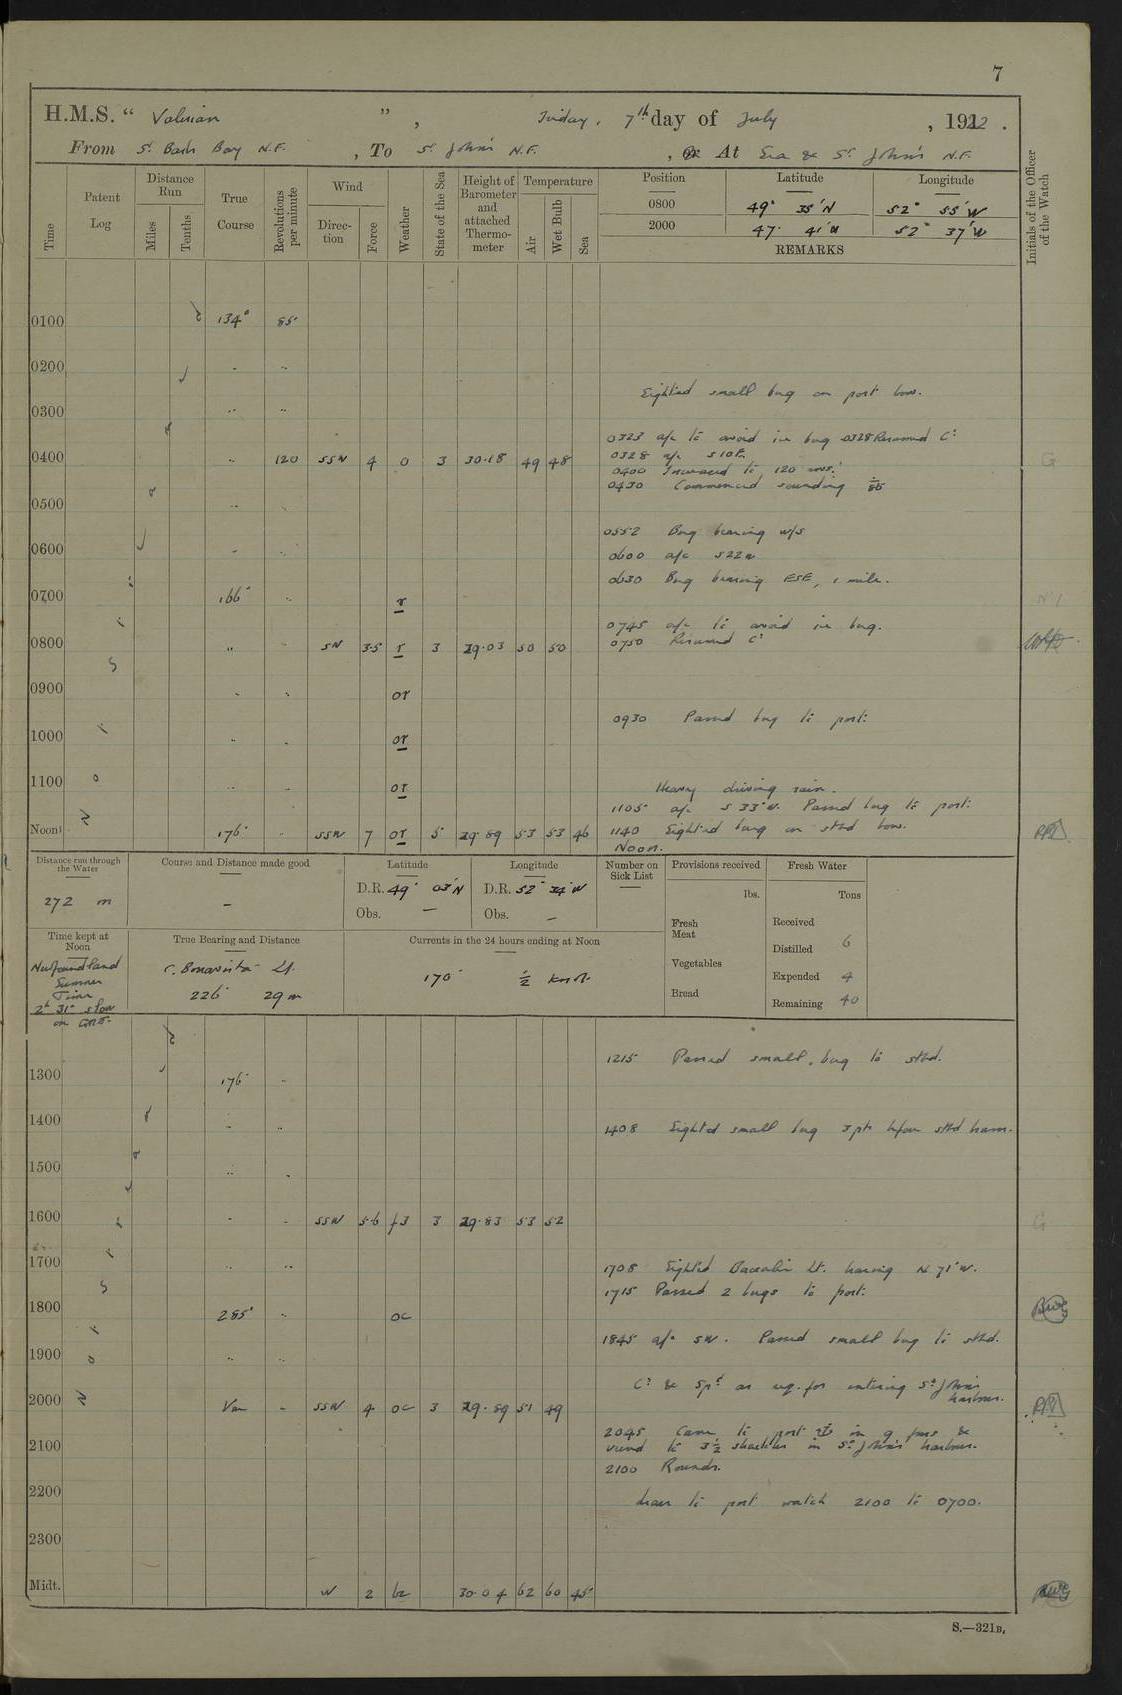 7
H.M.S. " Valerian ", Friday, 7th day of July, 1922.
From St. Barb Bay N.F., To St. John's N.F., Or At Sea & St. John's N.F.
Time
Patent Log
Distance Run
Miles
Tenths
True Course
Revolutions per minute
Wind
Direction
Force
Weather
State of the Sea
Height of Barometer and attached Thermometer
Temperature
Air
Wet Bulb
Sea
Position Latitude Longitude
0800 49° 35' N 52° 55' W
2000 47° 41' N 52° 37' W
REMARKS
Initials of the Officer of the Watch
0100 134° 85
0200 " "
Sighted small berg on port bow.
0300 " "
0323 a/c to avoid ice berg 0328 Resumed Co
0328 a/c S10E.
0400 " 120 SSW 4 o 3 30.18 49 48
0400 Increased to 120 revs.
0430 Commenced sounding
0500 " "
0552 Berg bearing W/S
0600 " "
0600 a/c S22E
0630 Berg bearing ESE, 1 mile.
0700 166° " r
0745 a/c to avoid ice berg.
0750 Resumed Co
0800 " " SW 3.5 r 3 29.03 50 50
0900 " " or
0930 Passed berg to port.
1000 " " or
1100 " " or
Heavy driving rain.
1105 a/c S33°W. Passed berg to port.
1140 Sighted berg on stbd bow.
Noon 176° " SSW 7 or 5 29.89 53 53 46
Noon.
Distance run through the Water
272 m
Course and Distance made good
–
Latitude
D.R. 49° 03' N
Obs. –
Longitude
D.R. 52° 34' W
Obs. –
Number on Sick List
Provisions received
lbs.
Fresh Meat
Vegetables
Bread
Fresh Water
Tons
Received
Distilled 6
Expended 4
Remaining 40
Time kept at Noon
Newfoundland Summer Time
2h 31m slow on GMT.
True Bearing and Distance
C. Bonavista Lt.
226° 29 m
Currents in the 24 hours ending at Noon
170° ½ knot
1215 Passed small berg to stbd.
1300 176° "
1400 " "
1408 Sighted small berg 3 pts before stbd beam.
1500 " "
1600 " " SSW 5-6 f3 3 29.83 53 52
1700 " "
1708 Sighted Baccalieu Lt. bearing N 71° W.
1715 Passed 2 bergs to port.
1800 285° " oc
1845 a/c SW. Passed small berg to stbd.
1900 " "
Co & Spd as req. for entering St. John's harbour.
2000 Var " SSW 4 oc 3 29.89 51 49
2045 Came to port in 9 fms &
veered to 3½ shackles in St. John's harbour.
2100
2100 Rounds.
2200
Leave to port watch 2100 to 0700.
2300
Midt. W 2 bc 30.04 62 60 45
S.—321B.